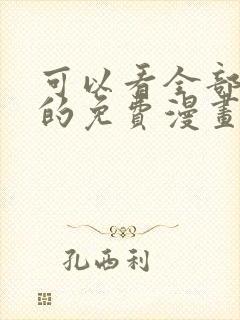 可以看全部
的免費漫畫
孔西利